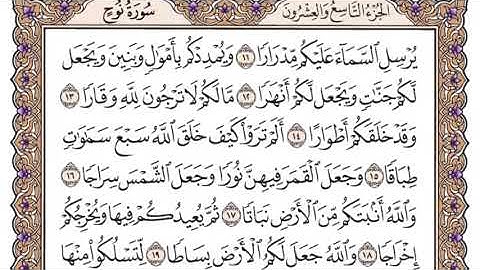 الجزء التاسع والعشرون سورة نوح
يُرْسِلِ ٱلسَّمَآءَ عَلَيْكُم مِّدْرَارًا ١١ وَيُمْدِدْكُم بِأَمْوَٰلٍ وَبَنِينَ وَيَجْعَل
لَّكُمْ جَنَّٰتٍ وَيَجْعَل لَّكُمْ أَنْهَٰرًا ١٢ مَّا لَكُمْ لَا تَرْجُونَ لِلَّهِ وَقَارًا ١٣
وَقَدْ خَلَقَكُمْ أَطْوَارًا ١٤ أَلَمْ تَرَوْا۟ كَيْفَ خَلَقَ ٱللَّهُ سَبْعَ سَمَٰوَٰتٍ
طِبَاقًا ١٥ وَجَعَلَ ٱلْقَمَرَ فِيهِنَّ نُورًا وَجَعَلَ ٱلشَّمْسَ سِرَاجًا ١٦
وَٱللَّهُ أَنۢبَتَكُم مِّنَ ٱلْأَرْضِ نَبَاتًا ١٧ ثُمَّ يُعِيدُكُمْ فِيهَا وَيُخْرِجُكُمْ
إِخْرَاجًا ١٨ وَٱللَّهُ جَعَلَ لَكُمُ ٱلْأَرْضَ بِسَاطًا ١٩ لِّتَسْلُكُوا۟ مِنْهَا